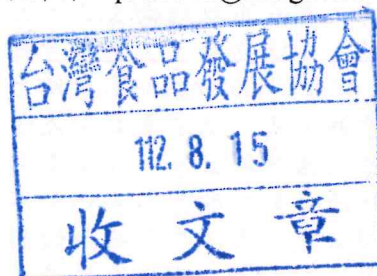 台灣食品發展協會
112. 8. 15
收文章